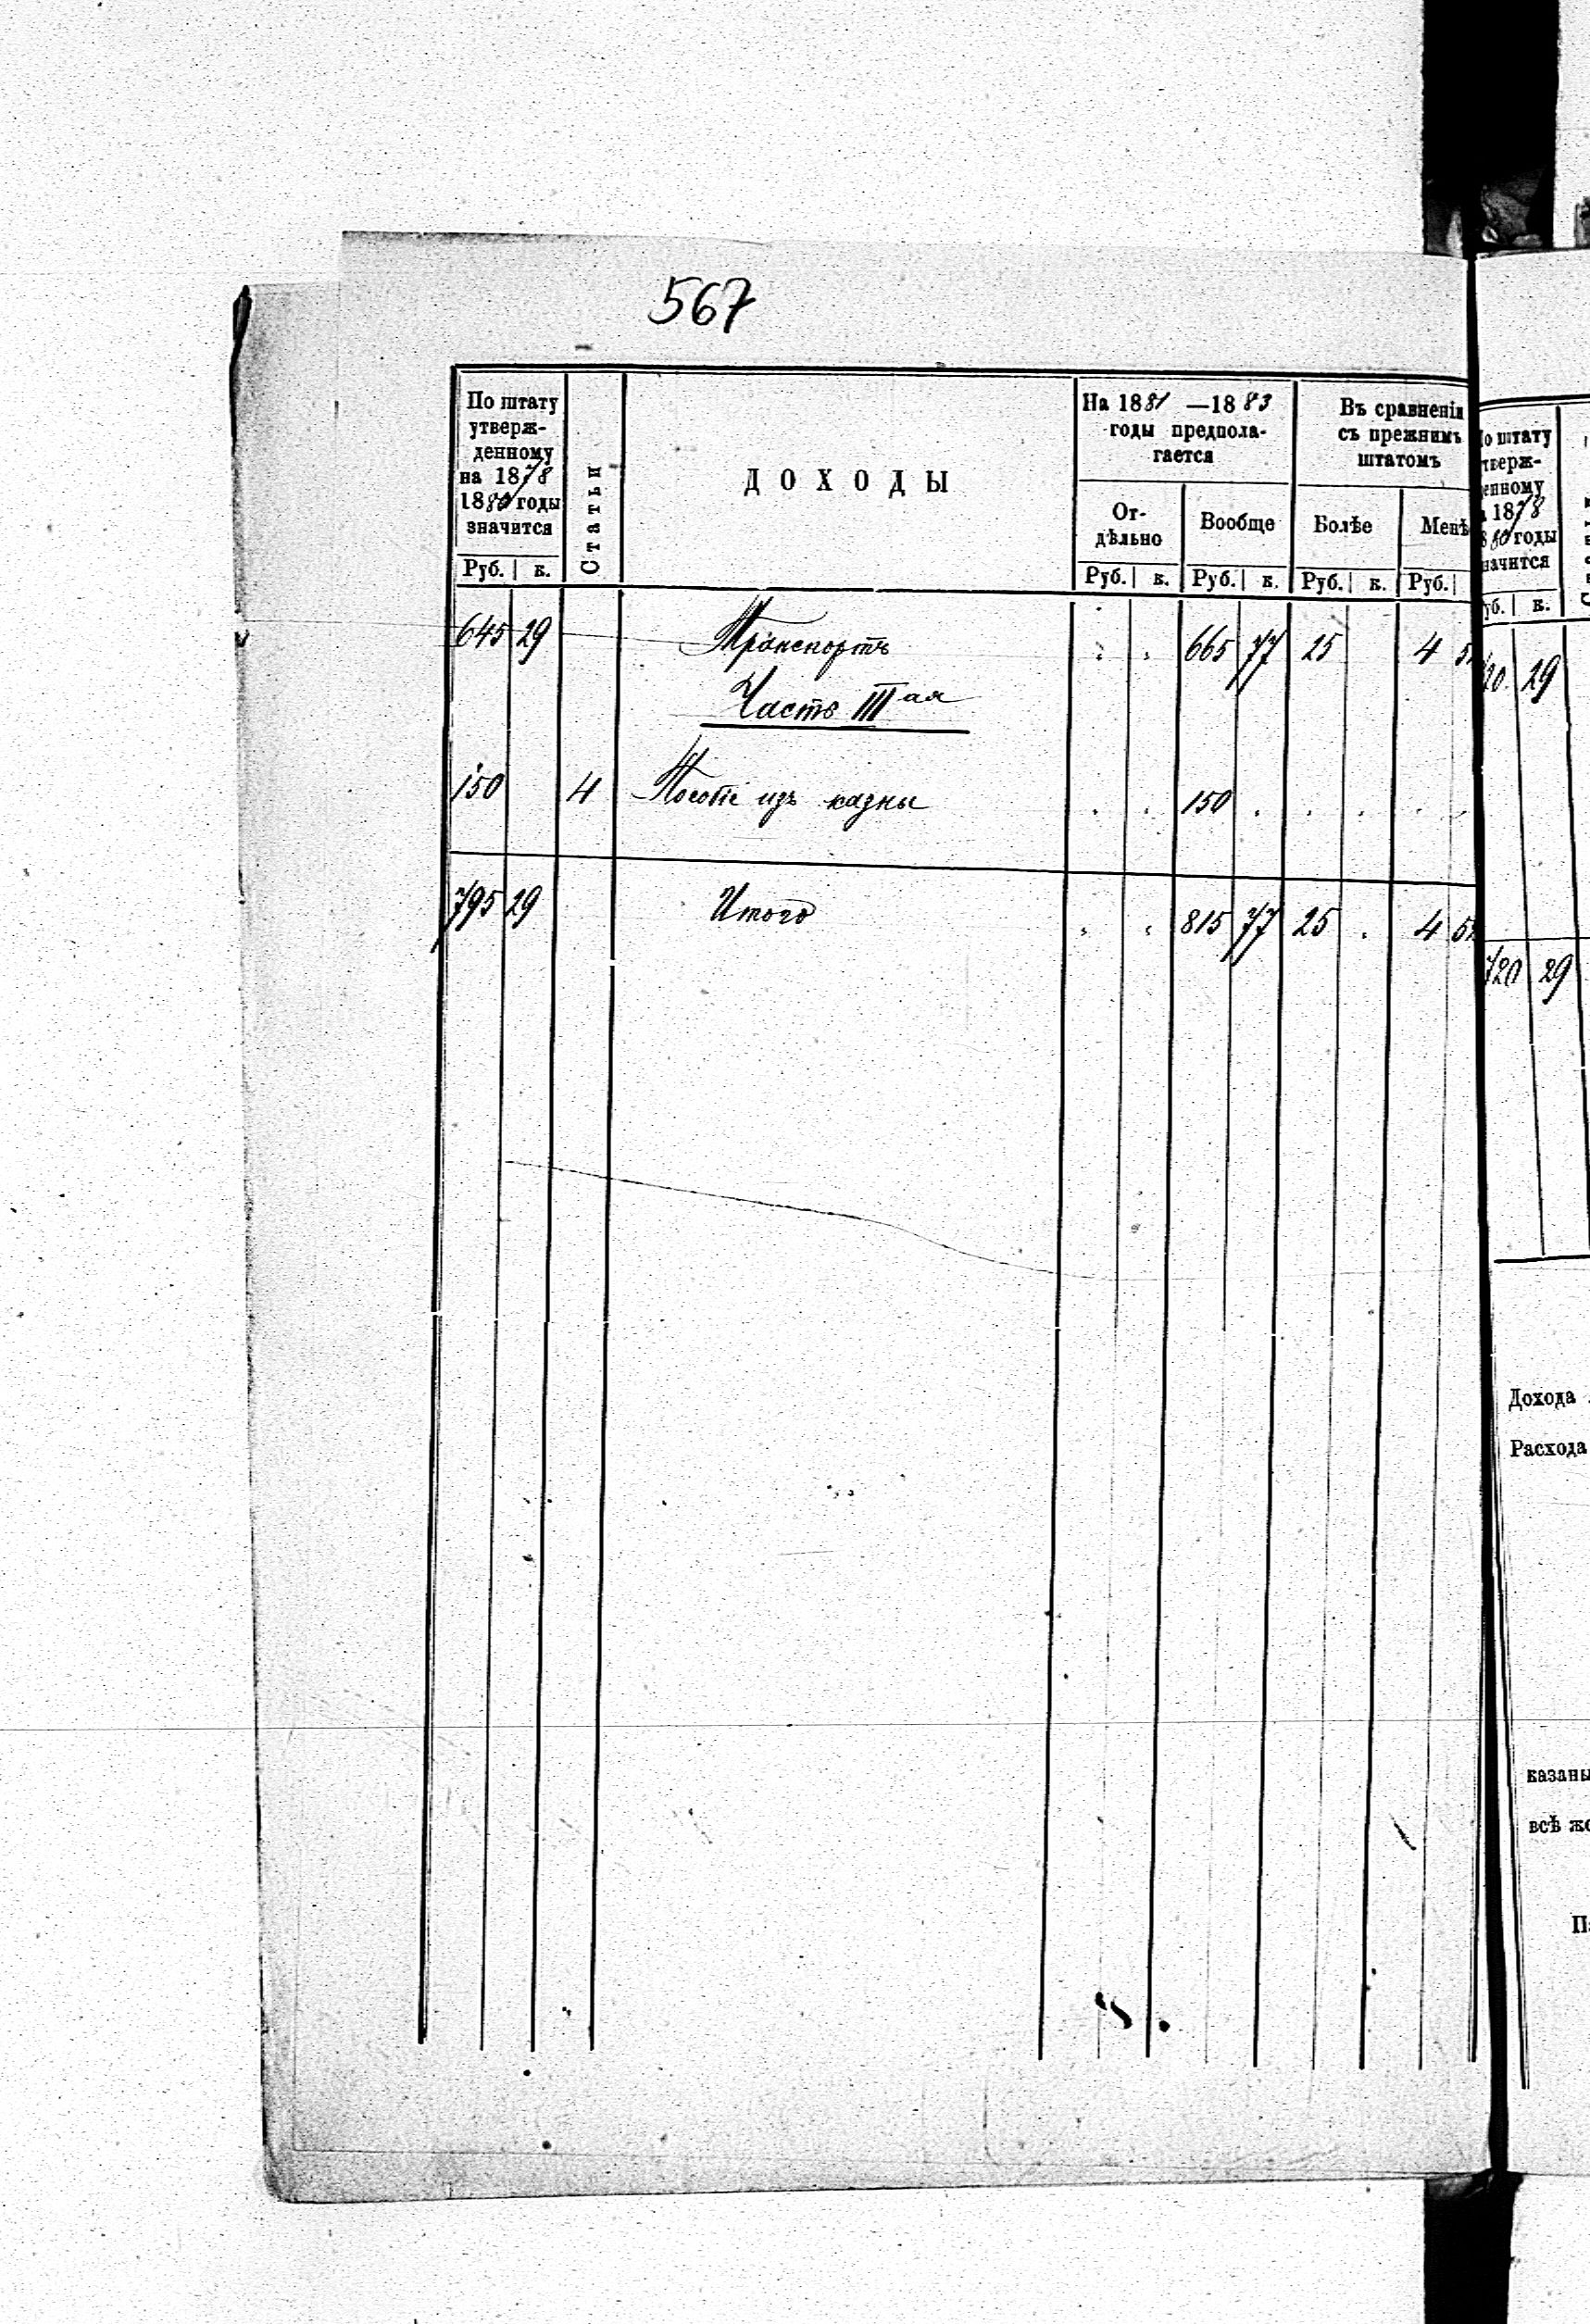 567
По штату
утверж-
денному
на 1878
1880 годы
значится
Руб. к.
Статьи
ДОХОДЫ
На 1881 —1883
годы предпола-
гается
От-
дѣльно
Руб. к.
Вообще
Руб. к.
Въ сравненіи
съ прежнимъ
штатомъ
Болѣе
Руб. к.
Менѣ
Руб.
645 29 Транспортъ 665 77 25 4
Часть IIIая
150 4 Пособіе изъ казны 150
795 29 Итого 815 77 25 4
о штату
тверж-
енному
1878
80 годы
начится
уб. к.
20 29
720 29
Дохода
Расхода
казаны
всѣ